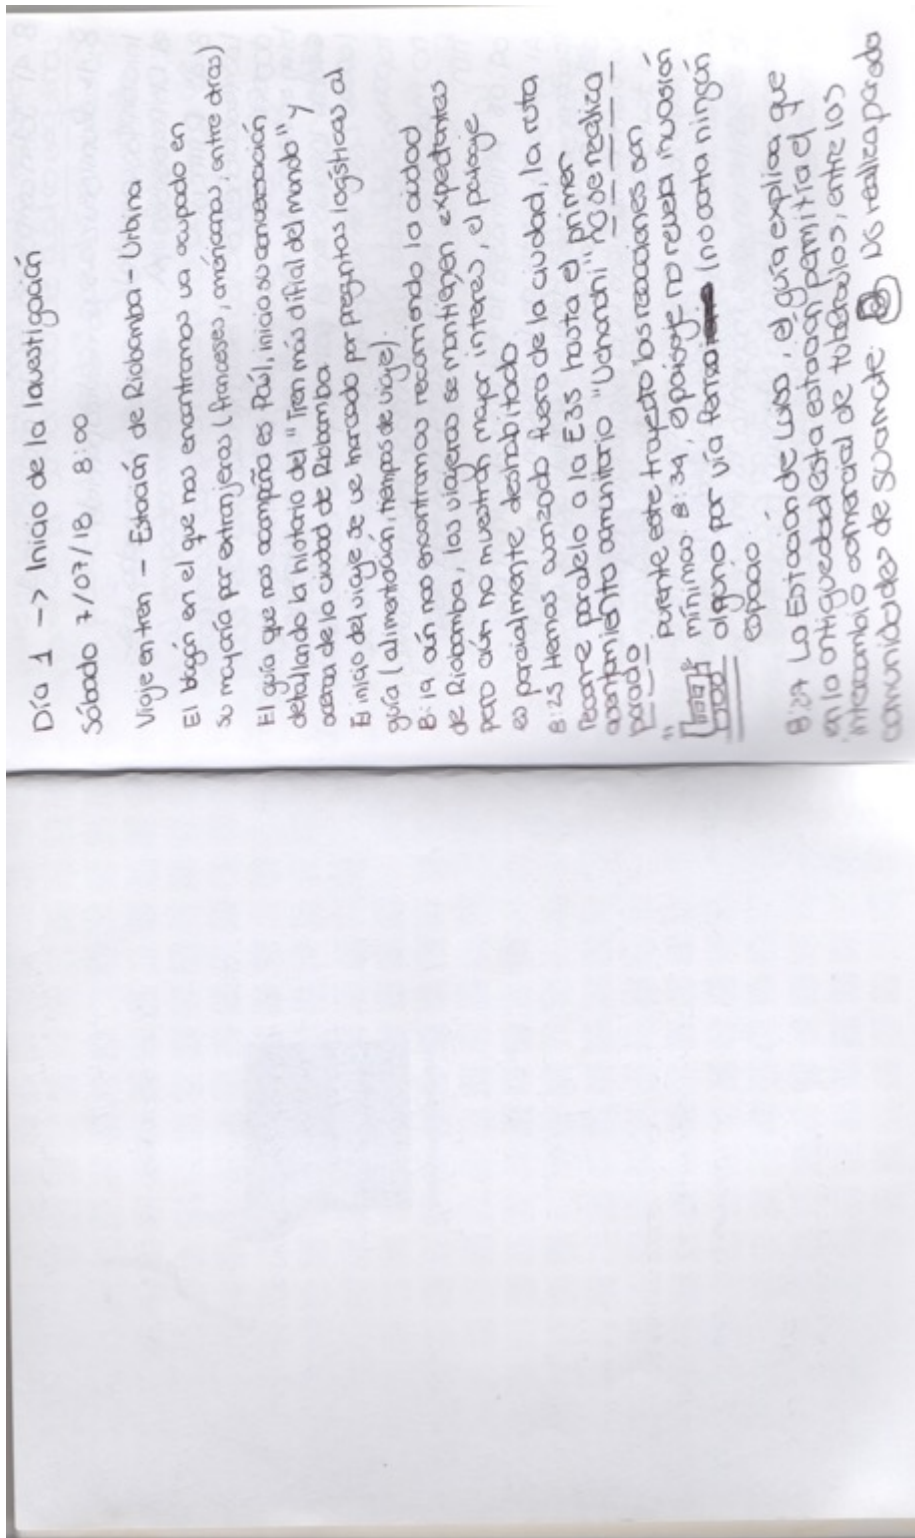 Día 1 -> Inicio de la Investigación
Sábado 7/07/18 8:00
Viaje en tren - Estación de Riobamba - Urbina
El bagón en el que nos encontramos va ocupado en
su mayoría por extranjeros (franceses, améncanos, entre otros)
El guía que nos acompaña es Paúl, inicia su conversación
detallando la historia del "Tren más difícil del mundo" y
acerca de la ciudad de Riobamba.
El inicio del viaje se ve marcado por preguntas logísticas al
guía (alimentación, tiempos de viaje).
8:19 aún nos encontramos recorriendo la ciudad
de Riobamba, los viajeros se mantienen expectantes
pero aún no muestran mayor interés, el paisaje
es parcialmente deshabitado
8:25 Hemos avanzado fuera de la ciudad, la ruta
recorre paralelo a la E35 hasta el primer
asentamiento comunitario "Uchanchi" no se realiza
parada
Durante este trayecto las reacciones son
mínimas. 8:34, el paisaje no revela invasión
alguna por vía ferrea (no corta ningún
espacio.
8:27 La Estación de Luisa, el guía explica que
en la antiguedad esta estación permitía el
intercambio comercial de tubérculos, entre los
comunidades de San Andrés. No realiza parada